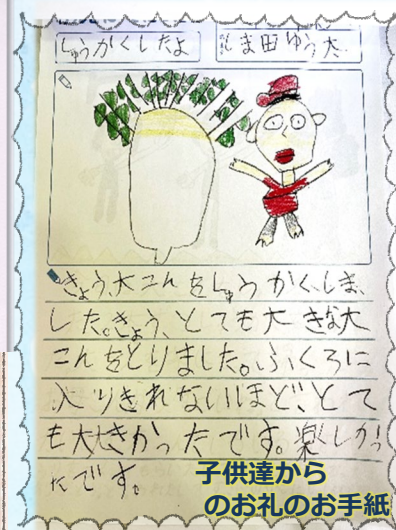 しゅうかくしたよ
ま田ゆう大
きょう、大こんをしゅうかく、しま、
した。きょう、とても大きな大
こんをとりました。ふくろに
入りきれないほど、とて
も大きかったです。楽しかっ
たです。
子供達から
のお礼のお手紙